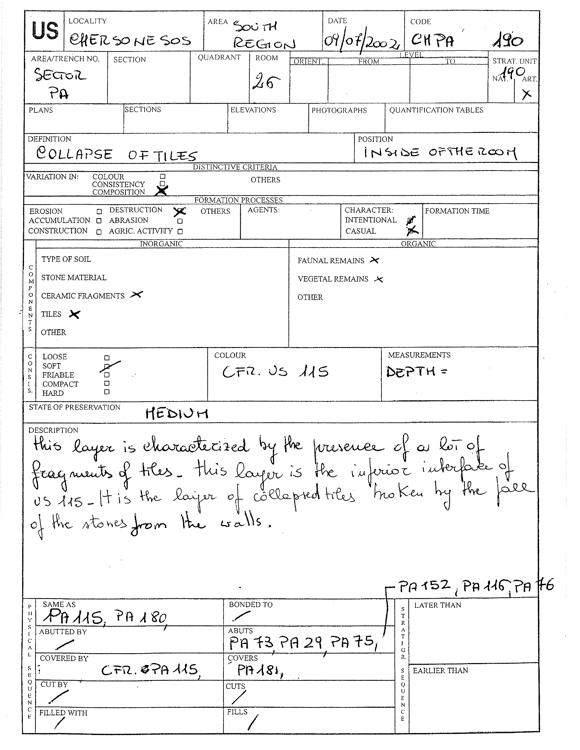 US
LOCALITY
CHERSONESOS
AREA SOUTH
REGION
DATE
09/07/2002
CODE
CHPA 190
AREA/TRENCH NO.
SECTOR
PA
SECTION
QUADRANT
ROOM
26
LEVEL
ORIENT. FROM TO
STRAT. UNIT
190
NAT. ART.
X
PLANS
SECTIONS
ELEVATIONS
PHOTOGRAPHS
QUANTIFICATION TABLES
DEFINITION
COLLAPSE OF TILES
POSITION
INSIDE OF THE ROOM
DISTINCTIVE CRITERIA
VARIATION IN: COLOUR
CONSISTENCY
COMPOSITION X
OTHERS
FORMATION PROCESSES
EROSION DESTRUCTION X OTHERS
ACCUMULATION ABRASION
CONSTRUCTION AGRIC. ACTIVITY
AGENTS:
CHARACTER:
INTENTIONAL
CASUAL X
FORMATION TIME
COMPONENTS
INORGANIC
TYPE OF SOIL
STONE MATERIAL
CERAMIC FRAGMENTS X
TILES X
OTHER
ORGANIC
FAUNAL REMAINS X
VEGETAL REMAINS X
OTHER
CONSIS.
LOOSE
SOFT
FRIABLE
COMPACT
HARD
COLOUR
CFR. US 115
MEASUREMENTS
DEPTH =
STATE OF PRESERVATION MEDIUM
DESCRIPTION
this layer is characterized by the presence of a lot of
fragments of tiles - this layer is the inferior interface of
US 115 - It is the layer of collapsed tiles broken by the fall
of the stones from the walls.
PA 152, PA 116, PA 76
PHYSICAL SEQUENCE
SAME AS
PA 115, PA 180,
BONDED TO
/
ABUTTED BY
/
ABUTS
PA 73, PA 29, PA 75,
COVERED BY
CFR. PA 115,
COVERS
PA 181,
CUT BY
/
CUTS
/
FILLED WITH
/
FILLS
/
STRATIGR. SEQUENCE
LATER THAN
EARLIER THAN